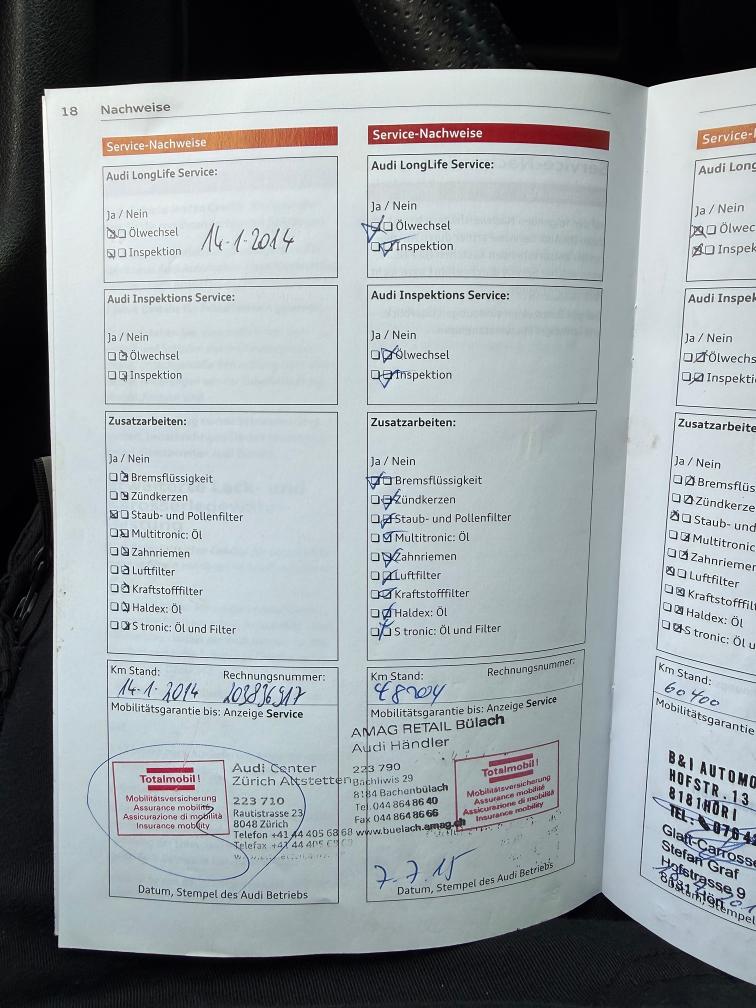 18 Nachweise
Service-Nachweise
Audi LongLife Service:
Ja / Nein
Ölwechsel
Inspektion
14-1-2014
Audi Inspektions Service:
Ja / Nein
Ölwechsel
Inspektion
Zusatzarbeiten:
Ja / Nein
Bremsflüssigkeit
Zündkerzen
Staub- und Pollenfilter
Multitronic: Öl
Zahnriemen
Luftfilter
Kraftstofffilter
Haldex: Öl
S tronic: Öl und Filter
Km Stand: Rechnungsnummer:
14-1-2014 203836917
Mobilitätsgarantie bis: Anzeige Service
Totalmobil!
Mobilitätsversicherung
Assurance mobilité
Assicurazione di mobilità
Insurance mobility
Audi Center
Zürich Altstetten
223 710
Rautistrasse 23
8048 Zürich
Telefon +41 44 405 68 68
Telefax +41 44 405
Datum, Stempel des Audi Betriebs
Service-Nachweise
Audi LongLife Service:
Ja / Nein
Ölwechsel
Inspektion
Audi Inspektions Service:
Ja / Nein
Ölwechsel
Inspektion
Zusatzarbeiten:
Ja / Nein
Bremsflüssigkeit
Zündkerzen
Staub- und Pollenfilter
Multitronic: Öl
Zahnriemen
Luftfilter
Kraftstofffilter
Haldex: Öl
S tronic: Öl und Filter
Km Stand: Rechnungsnummer:
Mobilitätsgarantie bis: Anzeige Service
AMAG RETAIL Bülach
Audi Händler
223 790
Bachliwis 29
8184 Bachenbülach
Tel. 044 864 86 40
Fax 044 864 86 66
www.buelach.amag.ch
Totalmobil!
Mobilitätsversicherung
Assurance mobilité
Assicurazione di mobilità
Insurance mobility
7-7.15
Datum, Stempel des Audi Betriebs
Service-
Audi Long
Ja / Nein
Ölwec
Inspek
Audi Inspek
Ja / Nein
Ölwechs
Inspekti
Zusatzarbeite
Ja / Nein
Bremsflüs
Zündkerze
Staub- und
Multitronic
Zahnriemen
Luftfilter
Kraftstofffil
Haldex: Öl
S tronic: Öl u
Km Stand:
60400
Mobilitätsgarantie
B&I AUTOMO
HOFSTR. 13
8181 HÖRI
TEL. 076 4
Glatt-Carrosse
Stefan Graf
Hofstrasse 9
8181 Höri